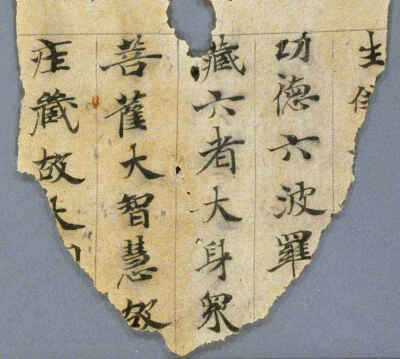 生
功德六波羅
藏六者大身衆
菩薩大智慧故
莊藏故大